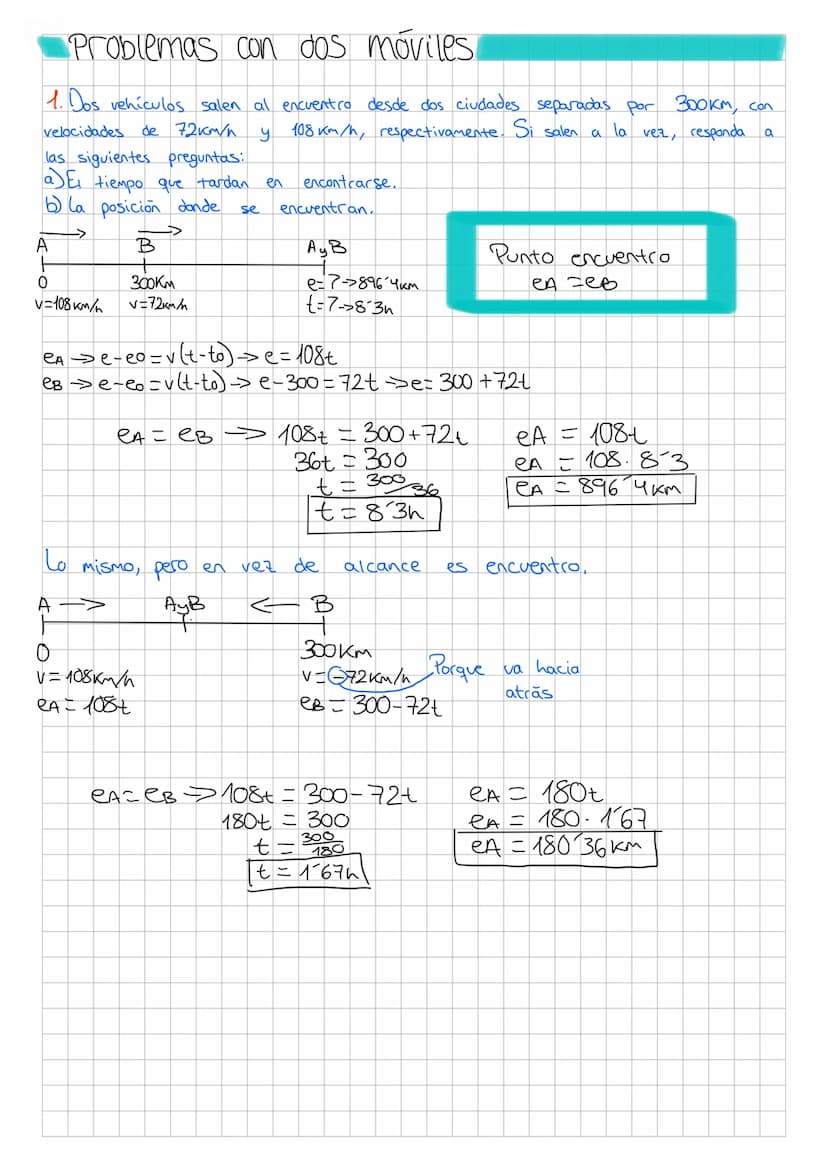 Problemas con dos móviles
1. Dos vehículos salen al encuentro desde dos ciudades separadas por 300Km, con
velocidades de 72Km/h y 108 Km/h, respectivamente. Si salen a la vez, responda a
las siguientes preguntas:
a) El tiempo que tardan en encontrarse.
b) La posición donde se encuentran.
A B AyB
0 300Km e=?->896'4km
v=108 km/h v=72km/h t=?->8'3h
Punto encuentro
eA = eB
eA -> e-e0 = v(t-t0) -> e = 108t
eB -> e-e0 = v(t-t0) -> e-300 = 72t -> e = 300+72t
eA = eB -> 108t = 300+72t
36t = 300
t = 300/36
t = 8'3h
eA = 108t
eA = 108 · 8'3
eA = 896'4 km
Lo mismo, pero en vez de alcance es encuentro.
A -> AyB <- B
0 300Km
v = 108Km/h v = -72Km/h Porque va hacia
atrás
eA = 108t eB = 300-72t
eA = eB -> 108t = 300-72t
180t = 300
t = 300/180
t = 1'67h
eA = 180t
eA = 180 · 1'67
eA = 180'36 Km